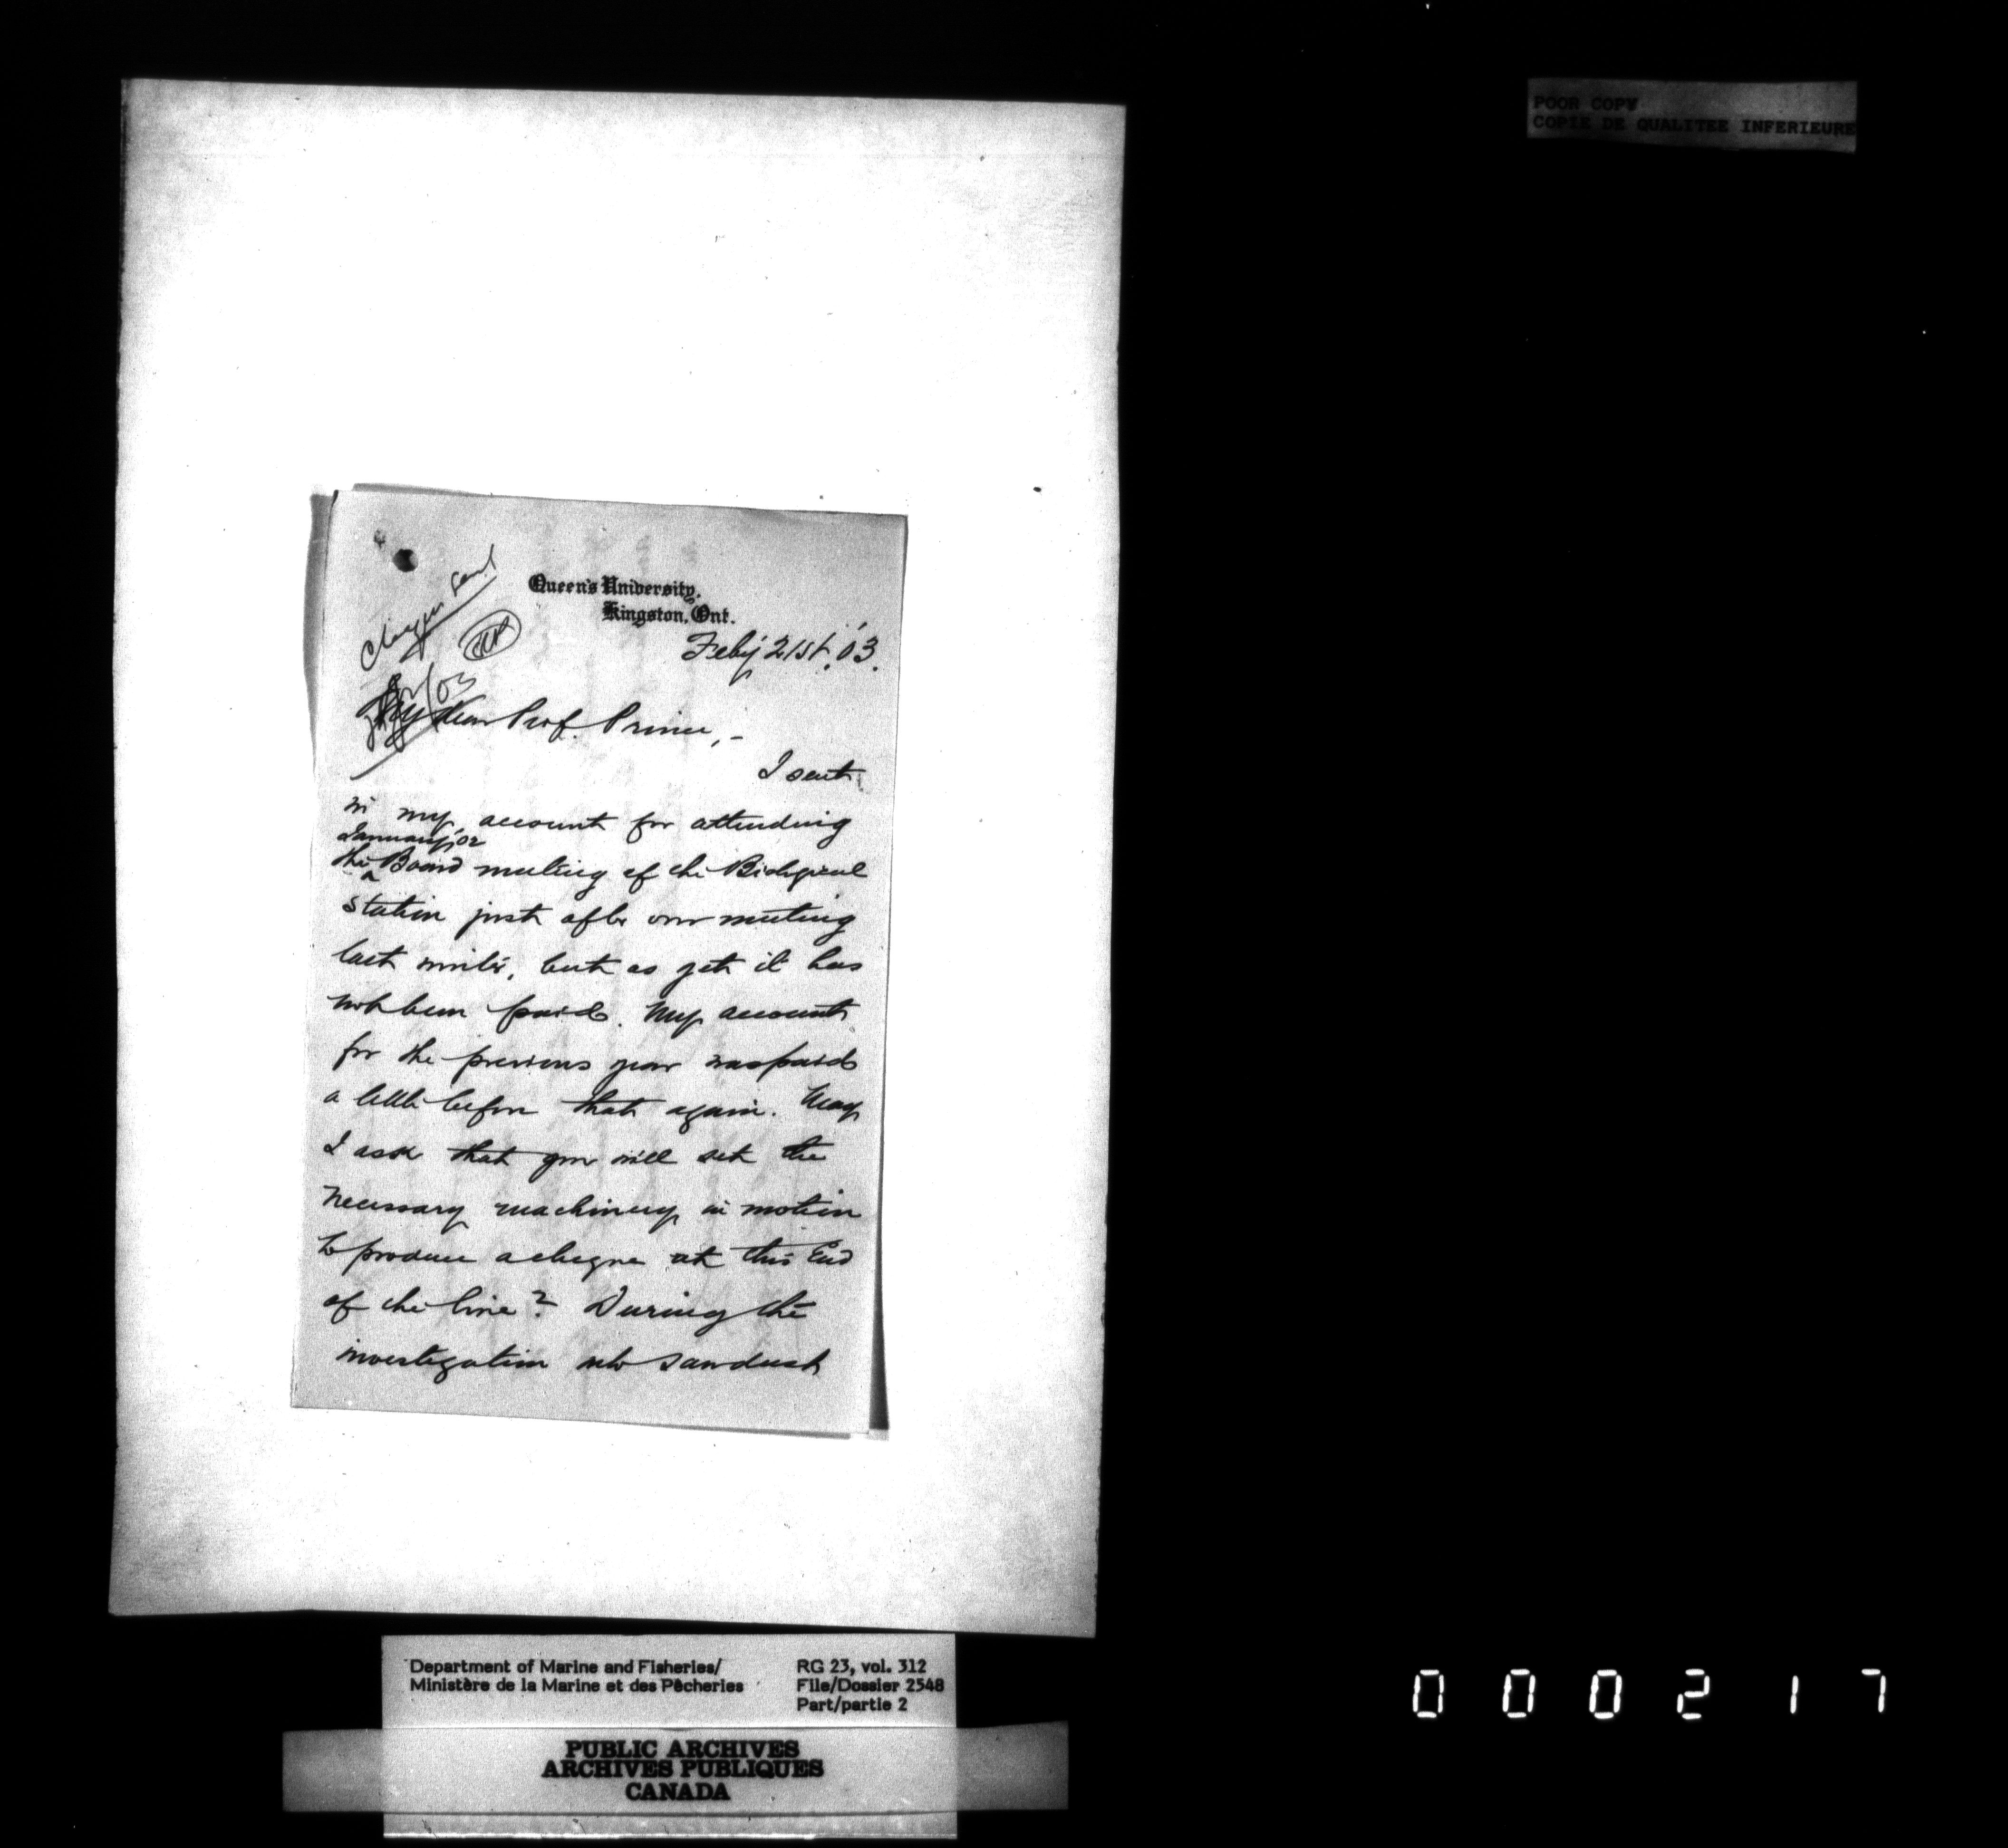 POOR COPY
COPIE DE QUALITEE INFERIEURE
Queen's University,
Kingston, Ont.
Feby 21st. '03.
My dear Prof. Prince, -
I sent
in my account for attending
January '02
the Board meeting of the Biological
station just after our meeting
last winter, but as yet it has
not been paid. My account
for the previous year was paid
a little before that again. May
I ask that you will set the
necessary machinery in motion
to produce a cheque at this End
of the line? During the
investigation into sawdust
Department of Marine and Fisheries/
Ministère de la Marine et des Pêcheries
RG 23, vol. 312
File/Dossier 2548
Part/partie 2
PUBLIC ARCHIVES
ARCHIVES PUBLIQUES
CANADA
000217